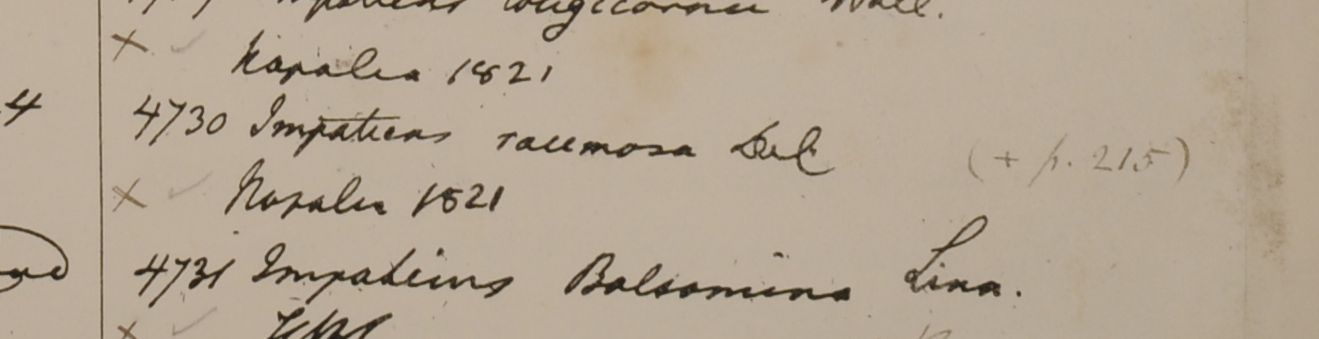 Impatiens longicornu Wall.
× ✓ Napalia 1821
4
4730 Impatiens racemosa DC (+ p. 215)
× ✓ Napalia 1821
4731 Impatiens Balsamina Linn.
× ✓